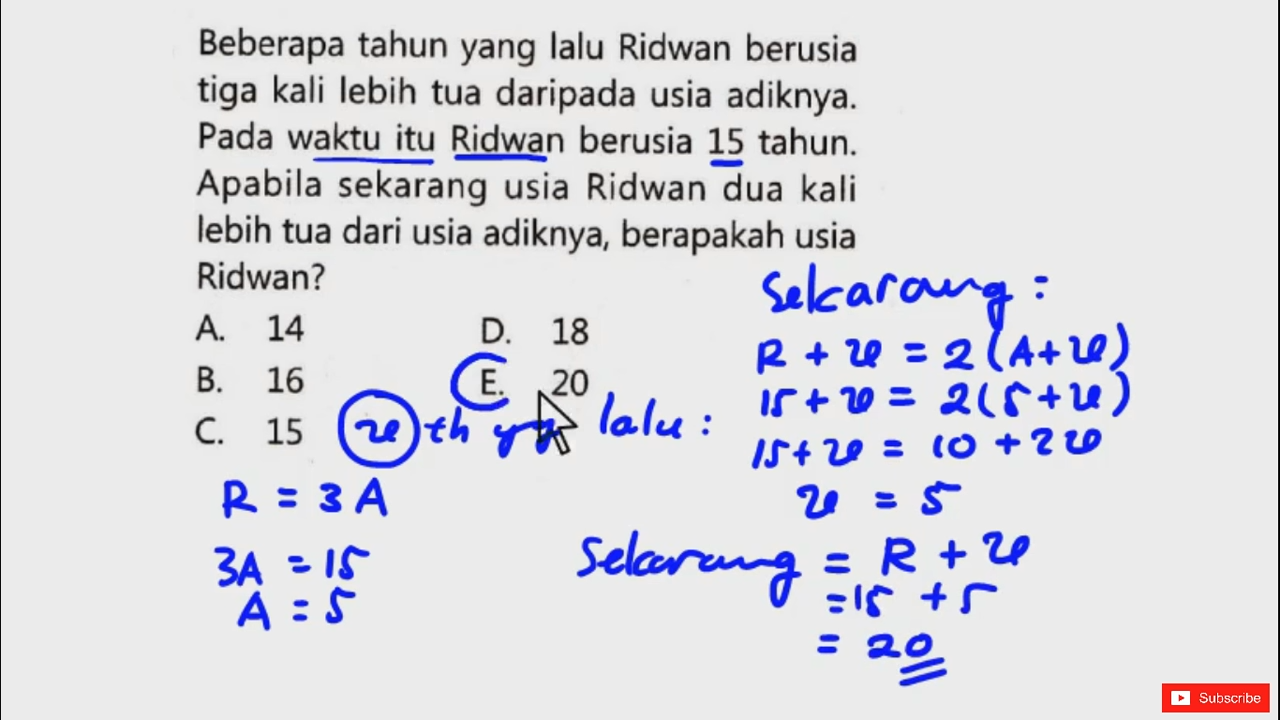 Beberapa tahun yang lalu Ridwan berusia
tiga kali lebih tua daripada usia adiknya.
Pada waktu itu Ridwan berusia 15 tahun.
Apabila sekarang usia Ridwan dua kali
lebih tua dari usia adiknya, berapakah usia
Ridwan?
A. 14
B. 16
C. 15
D. 18
E. 20
x th yg lalu :
R = 3A
3A = 15
A = 5
Sekarang :
R + x = 2(A+x)
15 + x = 2(5+x)
15 + x = 10 + 2x
x = 5
Sekarang = R + x
= 15 + 5
= 20
Subscribe